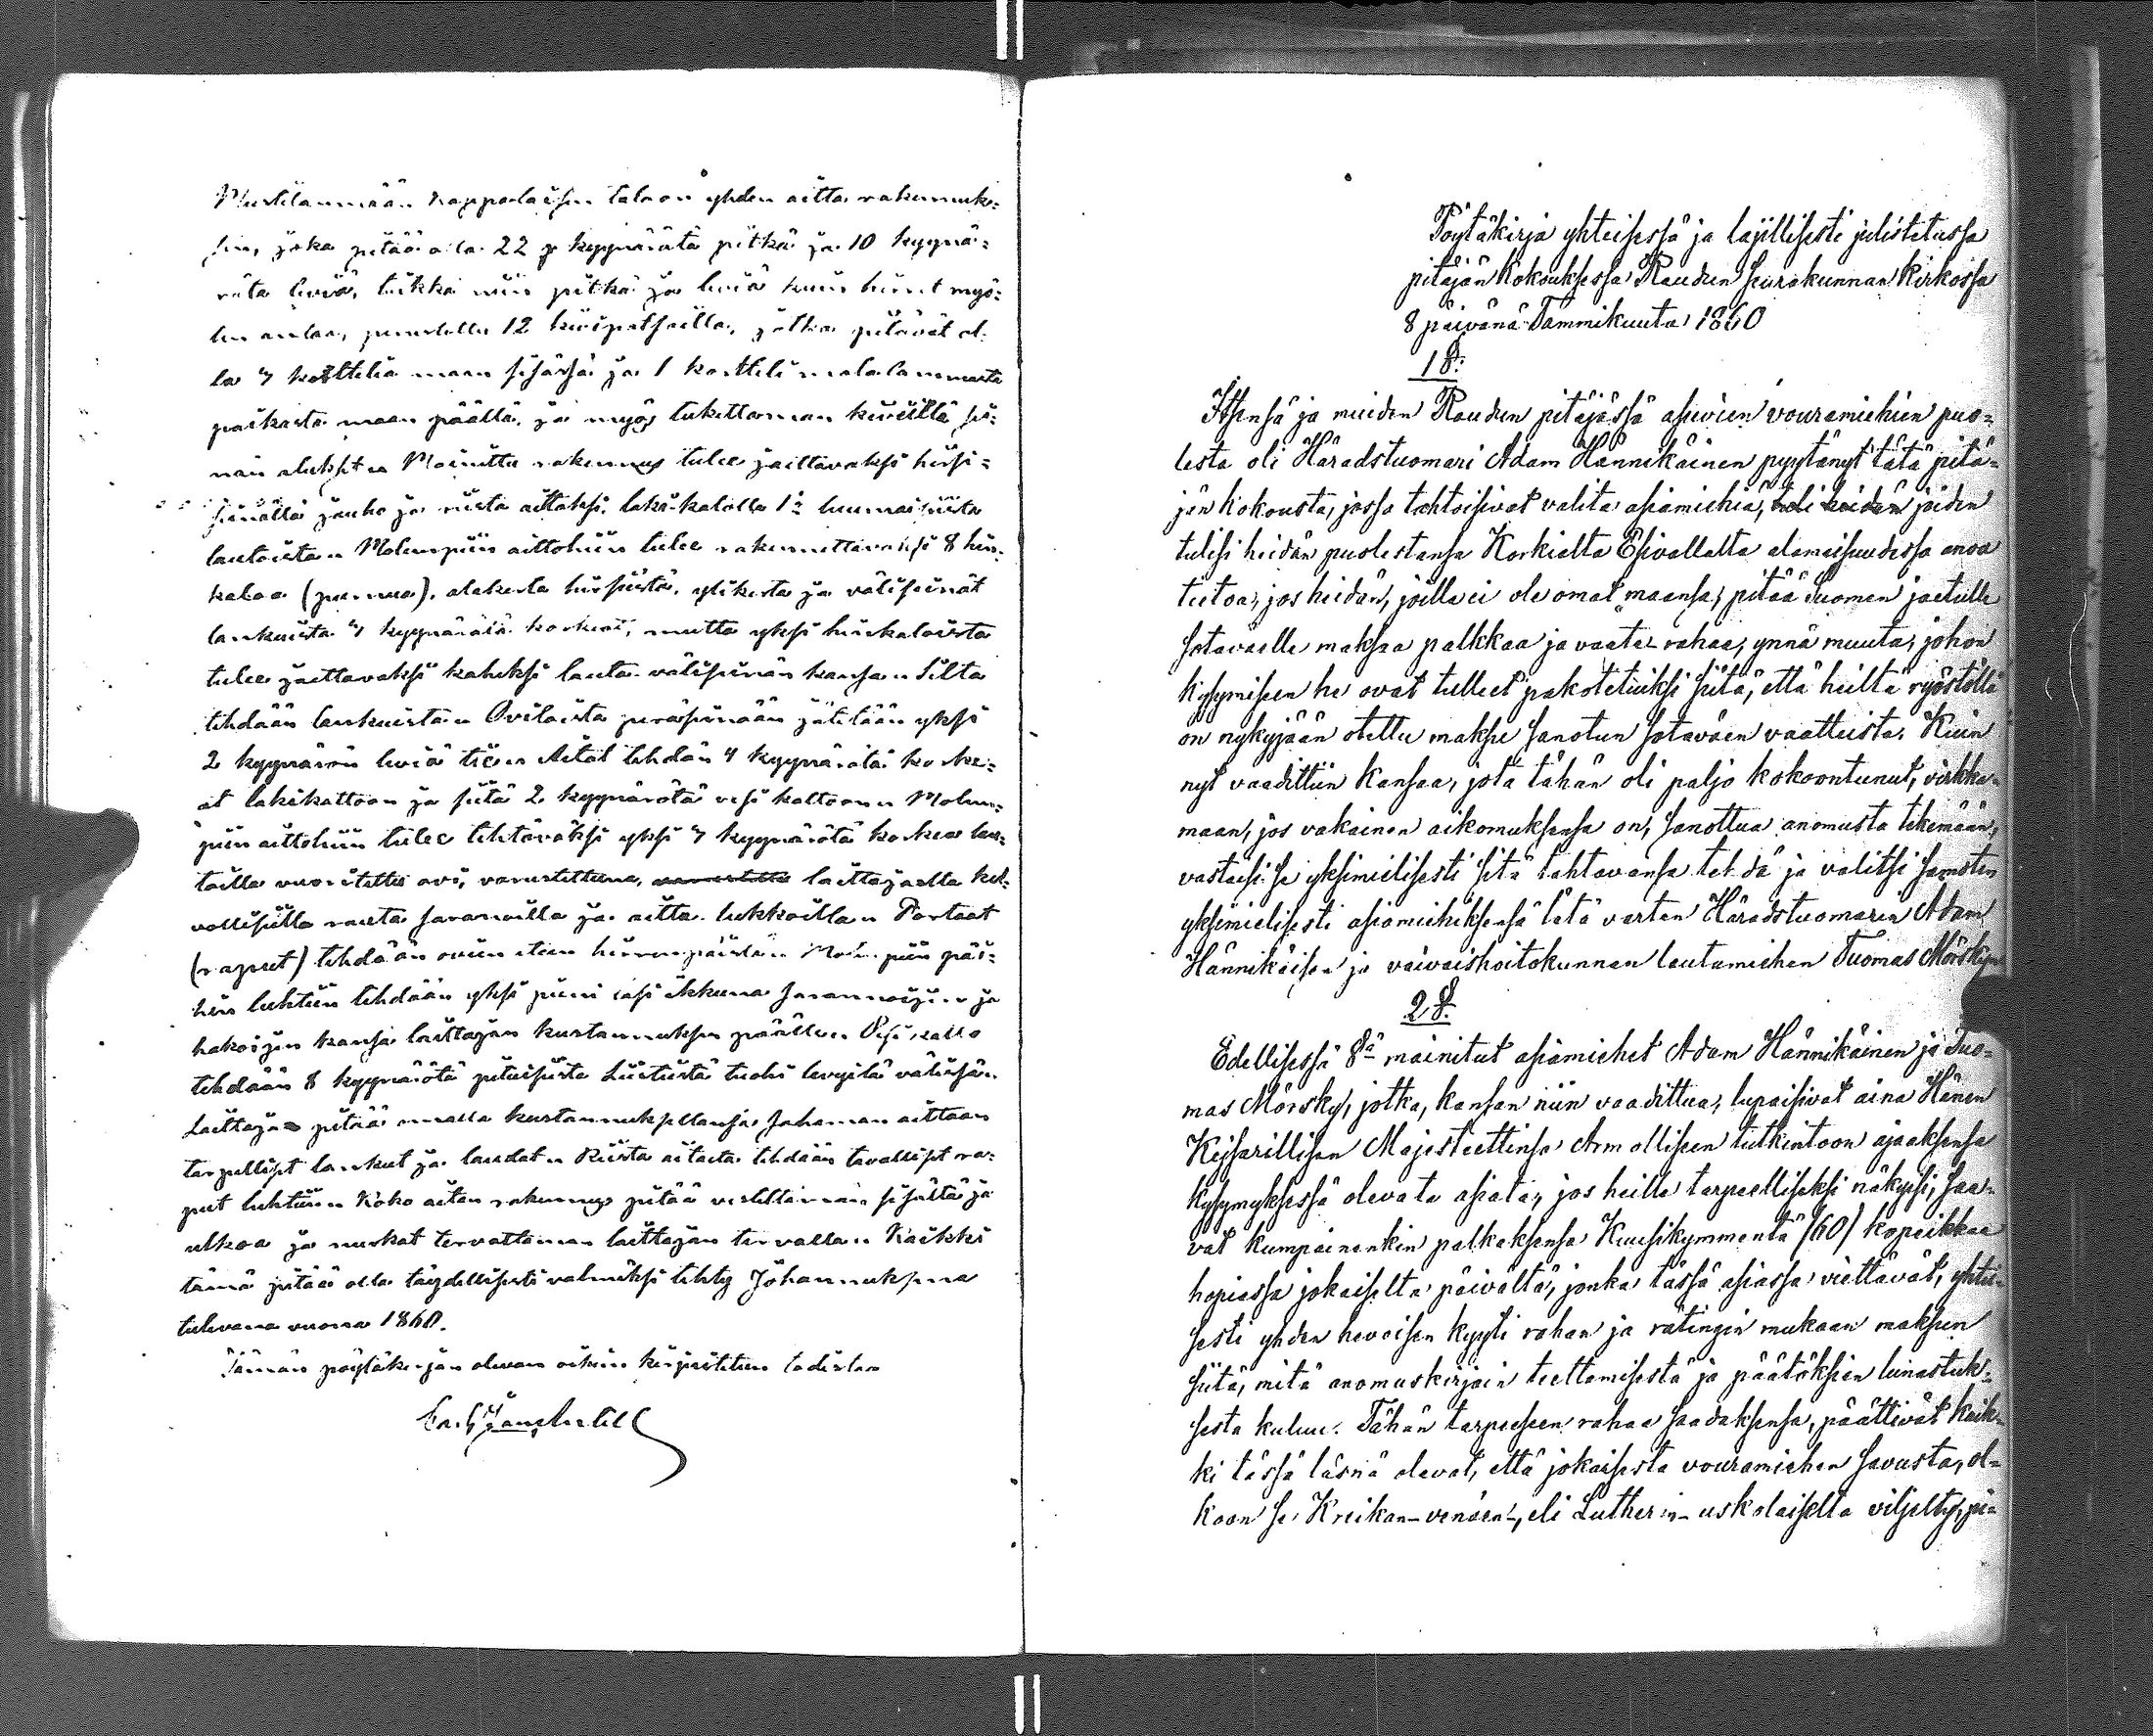 Mustilanmään Kappalaisen taloon yhden aitta rakennuk-
sen, joka pitää olla 22 kyynärätä pitkä ja 10 kyynä-
rätä leviä, liikka niin pitkä ja leviä kuin hirret myö-
ten antaa, perustettu 12 kivipatsailla, jotka pitävät ol-
la 4 korttelia maan sisässä ja 1 kortteli matalammasta
paikasta maan päällä, ja myös tukettaman kivillä sei-
nän alukset. Mainittu rakennus tulee jaettavaksi hirsi-
seinällä jauho ja riista aitaksi, laki-katolla lautoista
lautoista. Molempiin aittohin tulee rakennettavaksi 8 hin-
kaloa (purnua), alakerta hirsistä, ylikerta ja väliseinät
lankuista 4 kyynärätä korkiat, mutta yksi hinkaloista
tulee jaettavaksi kaheksi lauta väliseinän kanssa. Silta
tehdään lankuista. Ovilaista peräseinään jätetään yksi
2 kyynärän leviä tie. Aitat tehdän 4 kyynärätä korke-
at lakikattoon ja siitä 2 kyynärätä vesi kattoon. Molem-
piin aittohiin tulee tehtäväksi yksi 4 kyynärätä korkea lau-
toilla vuoritettu ovi, varustettuna, laittajalta kel-
vollisilla rauta saranoilla ja aitta lukkoilla. Portaat
(raput) tehdään ovien eteen hirrenpäistä. Molempiin päi-
hin luhtiin tehdään yksi pieni lasi ikkuna sarannoijen ja
hakoijen kansa laittajan kustannuksen päälle. Vesi katto
tehdään 8 kyynärätä pituisista liistuista tuohi levyilä välissä.
Laittaja pitää omalla kustannuksellansa sahaman aittaan
tarpelliset lankut ja laudat. Riista aitasta tehdään tavalliset ra-
put luhtiin. Koko aitan rakennus pitää vestettämän sisältä ja
ulkoa ja nurkat tervattaman laittajan tervalla. Kaikki
tämä pitää olla täydellisesti valmiiksi tehty Johannuksena
tulevana vuonna 1860.
Tämän pöytäkirjan olevan oikein kirjoitetun todistaa

Pöytäkirja yhteisessä ja lajillisesti julistetussa
pitäjän Kokouksessa Raudun seurakunnan Kirkossa
8 päivänä Tammikuuta 1860
1 §.
Itsensä ja muiden Raudun pitäjässä asuvien vouramiehien puo-
lesta oli Häradstuomari Adam Hännikäinen pyytänyt tätä pitä-
jän kokousta, jossa tahtoisivat valita asiamiehiä, joiden
tulisi heidän puolestansa Korkialta Esivallalta alamaisuudessa anoa
tietoa, jos heidän, joilla ei ole omat maansa, pitää Suomen jaetulle
sotaväelle maksaa palkkaa ja vaate-rahaa, ynnä muuta, johon
kysymiseen he ovat tulleet pakotetuiksi siitä, että heiltä ryöstöllä
on nykyjään otettu maksu sanotun sotaväen vaatteista. Kuin
nyt vaadittiin kansaa, jota tähän oli paljo kokoontunut, virkka-
maan, jos vakainen aikomuksensa on, sanottua anomusta tekemään,
vastaisi se yksimielisesti sitä tahtovansa tehdä ja valitsi samoten
yksimielisesti asiamieheksensä tätä varten Häradstuomarin Adam
Hännikäisen ja vaivaishoitokunnan lautamiehen Tuomas Mörskyn
2 §.
Edellisessä §:ä mainitut asiamiehet Adam Hännikäinen ja Tuo-
mas Mörsky, jotka, kansan niin vaadittua, lupaisivat aina Hänen
Keisarillisen Majesteettinsa Armolliseen tutkintoon ajaaksensa
kysymyksessä olevata asiata, jos heille tarpeelliseksi näkyisi, saa-
vat kumpainenkin palkaksensa Kuusikymmentä (60) kopeikkaa
hopiassa jokaiselta päivältä, jonka tässä asiassa viettävät, yhtei-
sesti yhden hevoisen kyyti rahan ja rätingin mukaan maksun
siitä, mitä anomuskirjain teettämisestä ja päätöksien lunastuk-
sesta kuluu. Tähän tarpeeseen rahaa saadaksensa, päättivät kaik-
ki tässä läsnä olevat, että jokaisesta vouramiehen savusta, ol-
koon se Kreikan-venäen-, eli Lutherin-uskolaiselta viljelty, pi-